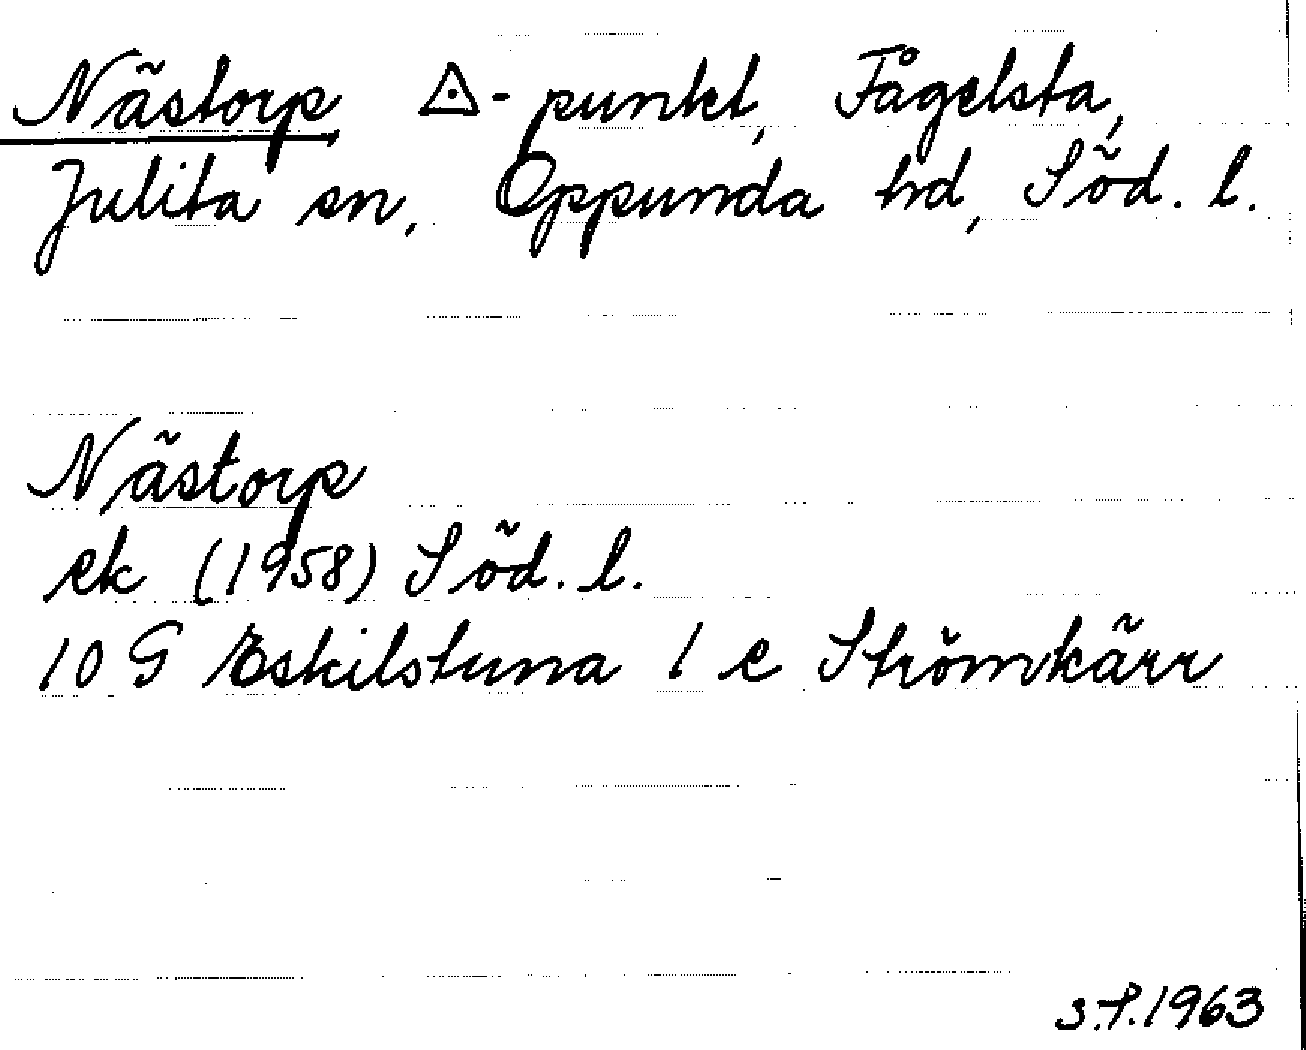 Nästorp, ◬-punkt, Fågelsta,
Julita sn, Oppunda hd, Söd. l.
Nästorp
ek (1958) Söd. l.
10 G Eskilstuna 1 e Strömkärr
S.P. 1963